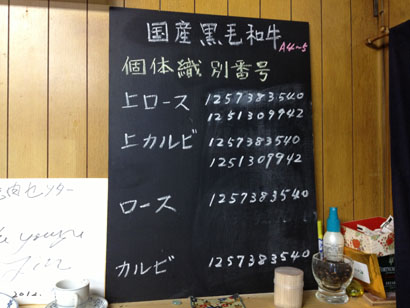 国産黒毛和牛
A4~5
個体織別番号
上ロース 1257383540
1251309942
上カルビ 1257383540
1251309942
ロース 1257383540
カルビ 1257383540
肉センター
2012.